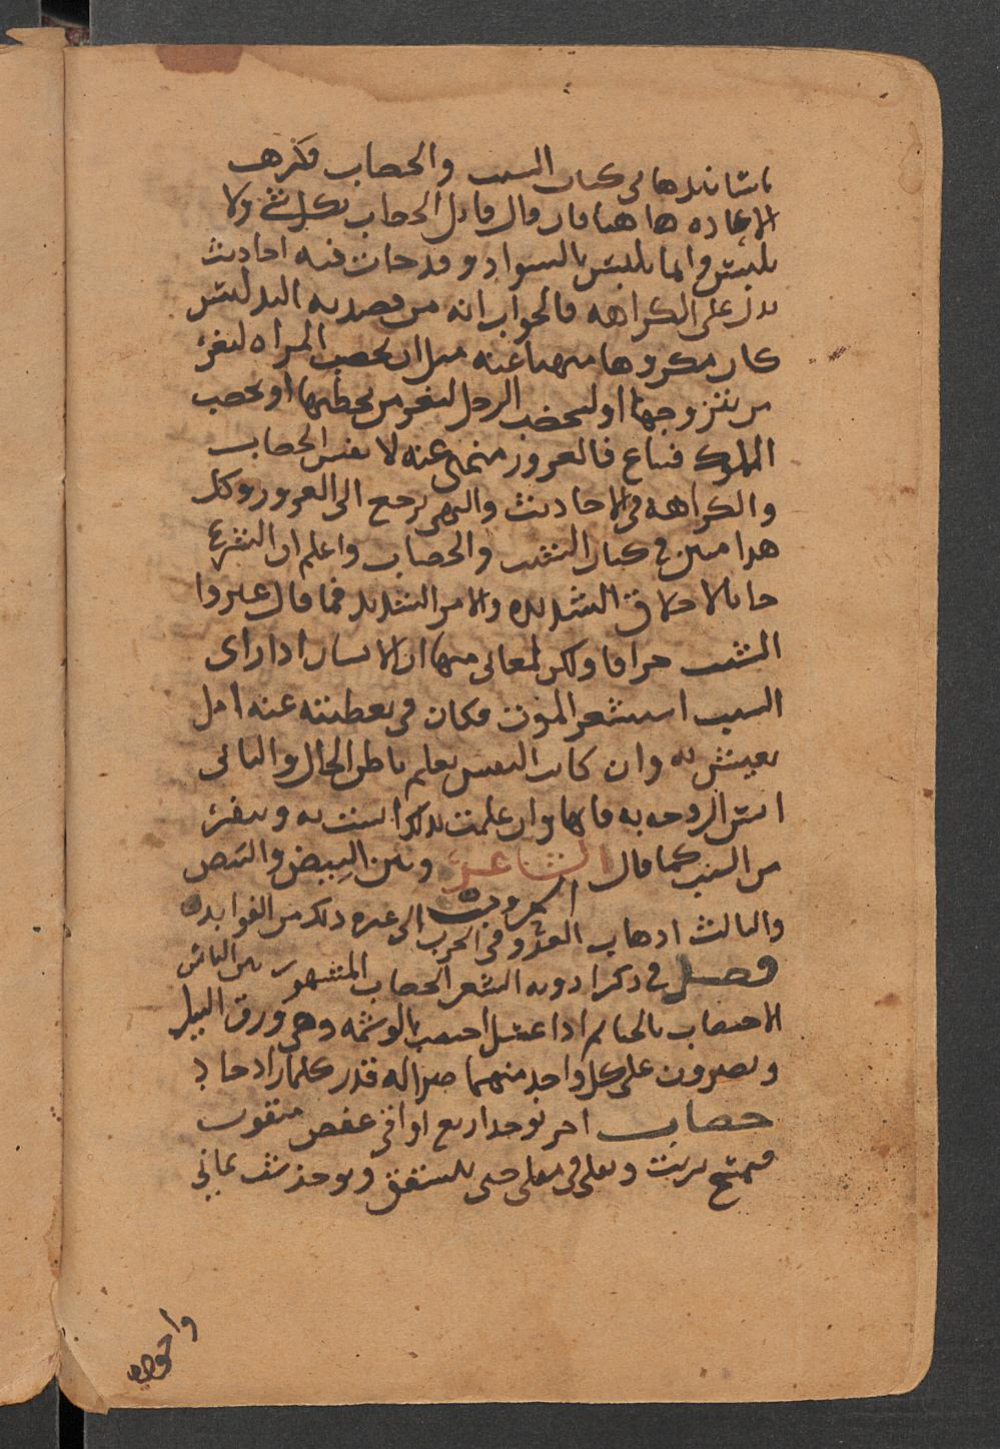 باسانيدها في كتاب الشيب والخضاب فكرهت
الاعاده ها هنا فان قال قايل الخضاب بكل شي ولا
يلبس وانما يلبس بالسواد وقد جات فيه احاديث
تدل على الكراهه فالجواب انه من قصد به التدليس
كان مكروها منهيا عنه مثل ان تخضب المراه لتغر
من يتزوجها او يخضب الرجل ليغر من يخطبها او يخضب
المملوك فيباع فالغرور منهي عنه لا نفس الخضاب
والكراهه في الاحاديث والنهي يرجع الى الغرور وكل
هذا مبين في كتاب الشيب والخضاب واعلم ان الشرع
جا بالاخلاق الشديده والامر الشديد فما قال غيروا
الشيب جزافا ولكن لمعاني منها ان الانسان اذا راى
الشيب استشعر الموت فكان في تغطيته عنه امل
يعيش به وان كانت النفس تعلم باطن الحال والثاني
انس الزوجه به فانها وان علمت بذلك انست به وتنفر
من الشيب كما قال الشاعر وبين البيض والبيض
والثالث ارهاب العدو في الحرب الى غير ذلك من الفوايد
فصل في ذكر ادويه الشعر الخضاب المشهور بين الناس
الاختضاب بالحنا ثم اذا غسل اختضب بالوشمه وهي ورق النيل
ويصبرون على كل واحد منهما صبرا له قدر كلما زاد جاد
خضاب اخر يوخذ اربع اواقي عفص مثقوب
فيمسح بزيت ويغلى في مقلى حتى يتشقق ويوخذ شب يماني